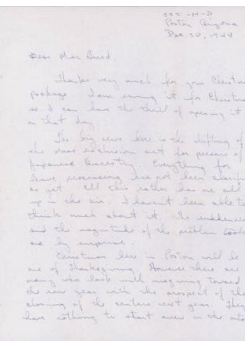 Poston, Arizona
Dec. 20, 1944
Dear Miss Breed,
Thanks very much for your Christmas
package. I am saving it for Christmas
so I can have the thrill of opening it
on that day.
The big news here is the lifting of
the mass exclusion act for persons of
Japanese ancestry. Everything
have
as yet. All this rather has me all
up in the air. I haven't been able to
think much about it. The suddenness
and the magnitude of the matter
me by surprise.
Christmas here in Poston will be
one of Thanksgiving. However there are
many who look with misgiving toward
the new year with the prospect of the
closing of the centers next year. They
have nothing to start over in the